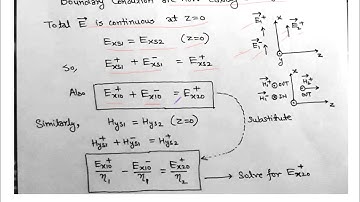 Boundary Condition are now
Total E⃗ is continuous at z=0
E_xs1 = E_xs2 (z=0)
So,
E⁺_xs1 + E⁻_xs1 = E⁺_xs2
Also
E⁺_x10 + E⁻_x10 = E⁺_x20
Similarly, H_ys1 = H_ys2 (z=0)
H⁺_ys1 + H⁻_ys1 = H⁺_ys2
Substitute
E⁺_x10/η₁ - E⁻_x10/η₁ = E⁺_x20/η₂
Solve for E⁺_x20
x
z
y
x
z
OUT
IN
OUT